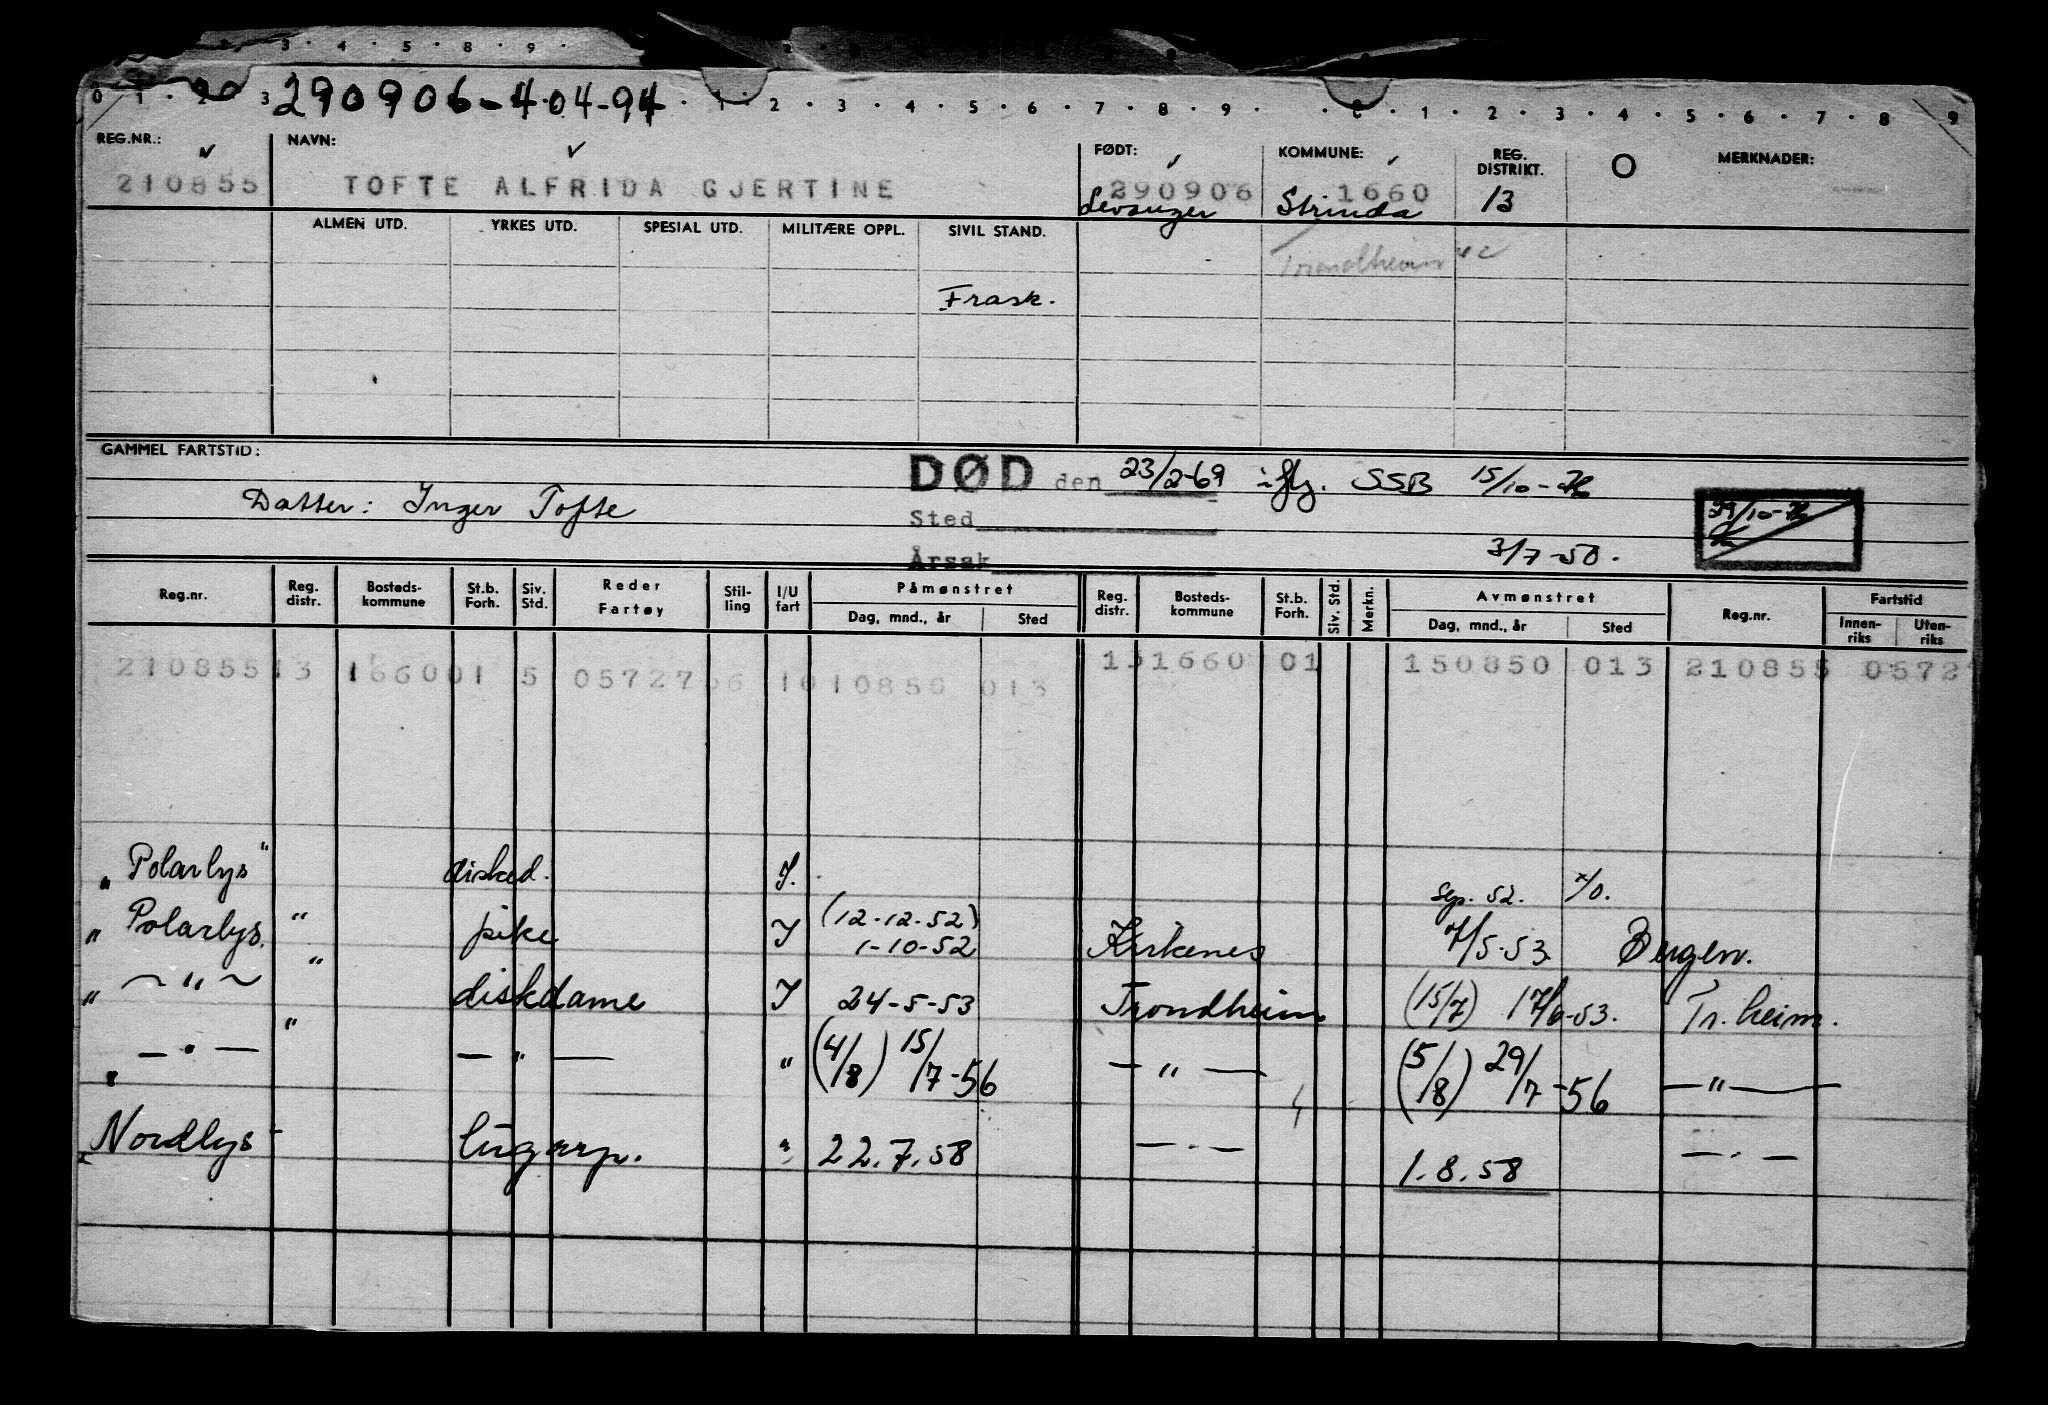 3 · 4 · 5 · 8 · 9 ·
0 · 1 · 2 · 3 290906-404-94 · 1 · 2 · 3 · 4 · 5 · 6 · 7 · 8 · 9 · · 1 · 2 · 3 · 4 · 5 · 6 · 7 · 8 · 9
REG.NR.: NAVN: FØDT: KOMMUNE: REG. DISTRIKT. O MERKNADER:
210855 TOFTE ALFRIDA GJERTINE 290906 1660
Levanger Strinda 13
ALMEN UTD. YRKES UTD. SPESIAL UTD. MILITÆRE OPPL. SIVIL STAND.
Trondheim
Frask.
GAMMEL FARTSTID:
DØD den 23/2-69 iflg. SSB 15/10-
Datter: Inger Tofte
Sted
3/7-50.
Årsak
Reg.nr. Reg. distr. Bosteds-kommune St.b. Forh. Siv. Std. Reder Fartøy Stil-ling I/U fart Påmønstret Dag, mnd., år Sted Reg. distr. Bosteds-kommune St.b. Forh. Siv. Std. Merkn. Avmønstret Dag, mnd., år Sted Reg.nr. Fartstid Innen-riks Uten-riks
210855 13 1660 01 5 05727 66 1 010850 013 13 1660 01 150850 013 210855 0572
„Polarlys" disked. I. sep. 52.
„Polarlys" pike I (12-12-52) 1-10-52 Kirkenes 7/5-53. Bergen.
„ ~ " ~ " diskdame I 24-5-53 Trondheim (15/7) 17/6-53. Tr.heim.
„ — " — " — " — " (4/8) 15/7-56 — " — (5/8) 29/7-56 — " —
Nordlys lugarp. " 22.7.58 — " — 1.8.58 — " —